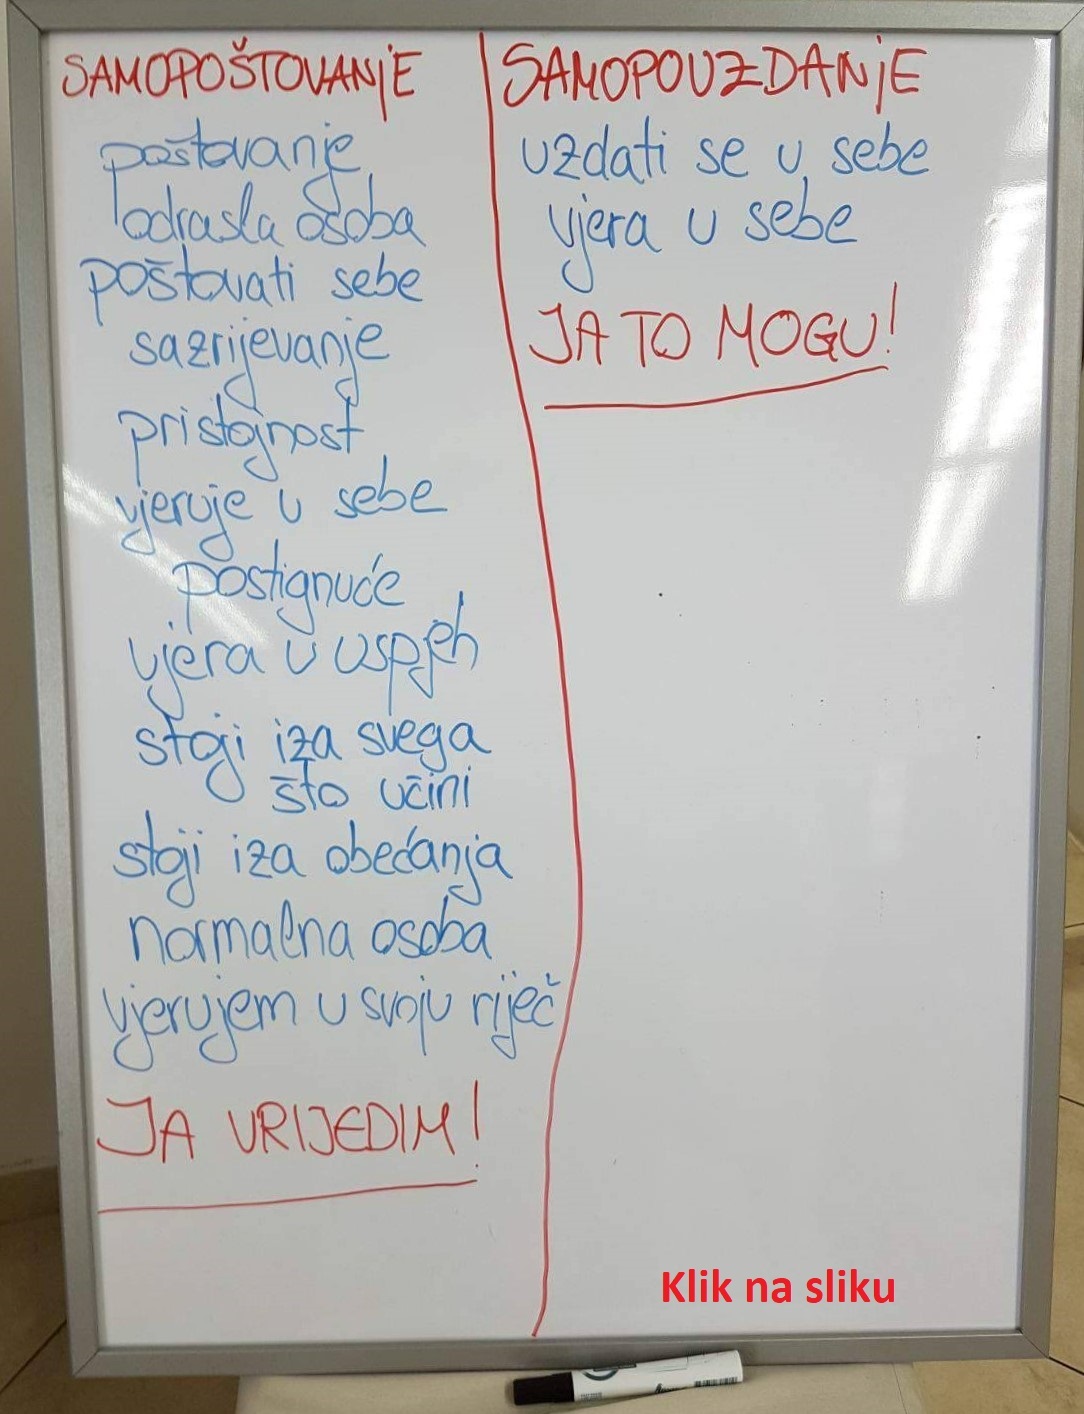 SAMOPOŠTOVANjE
poštovanje
odrasla osoba
poštovati sebe
sazrijevanje
pristojnost
vjeruje u sebe
postignuće
vjera u uspjeh
stoji iza svega
što učini
stoji iza obećanja
normalna osoba
vjerujem u svoju riječ
JA VRIJEDIM!
SAMOPOUZDANjE
uzdati se u sebe
vjera u sebe
JA TO MOGU!
Klik na sliku